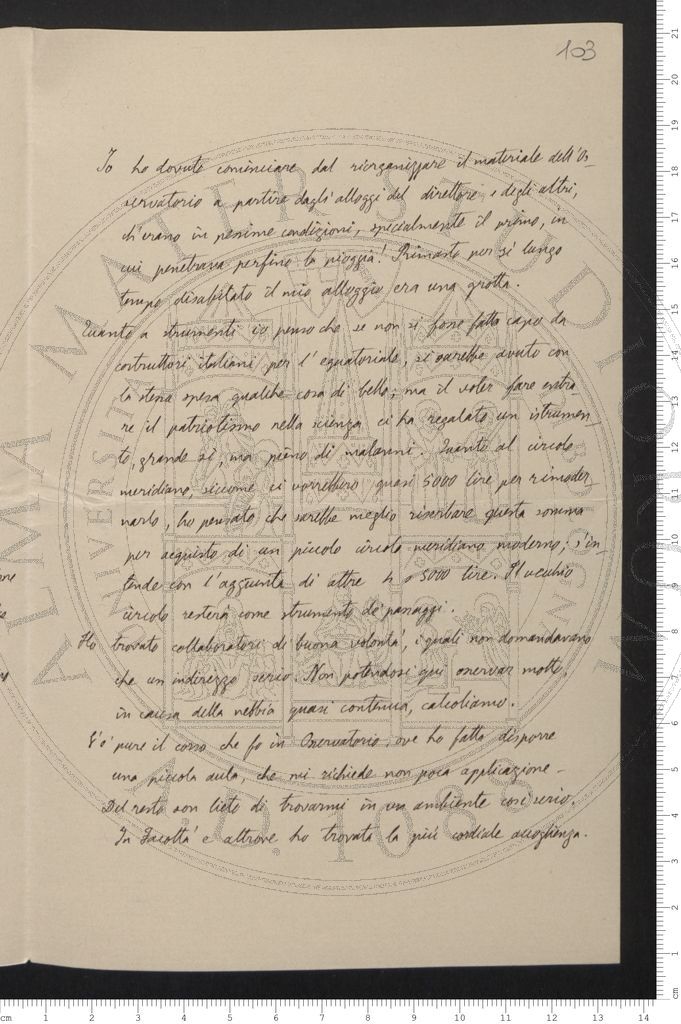 103
Io ho dovuto cominciare dal riorganizzare il materiale dell'Os-
servatorio a partire dagli alloggi del direttore e degli altri,
ch'erano in pessime condizioni, specialmente il primo, in
cui penetrava perfino la pioggia! Rimasto per sì lungo
tempo disabitato il mio alloggio era una grotta.
Quanto a strumenti io penso che se non si fosse fatto capo da
costruttori italiani per l'equatoriale, si sarebbe avuto con
la stessa spesa qualche cosa di bello; ma il voler fare entra-
re il patriottismo nella scienza ci ha regalato un istrumen-
to, grande sì, ma pieno di malanni. Quanto al circolo
meridiano, siccome ci vorrebbero quasi 5000 lire per rimoder-
narlo, ho pensato che sarebbe meglio riserbare questa somma
per acquisto di un piccolo circolo meridiano moderno; s'in-
tende con l'aggiunta di altre 4 o 5000 lire. Il vecchio
circolo resterà come strumento de' passaggi.
Ho trovato collaboratori di buona volontà, i quali non domandavano
che un indirizzo serio. Non potendosi qui osservar molto,
in causa della nebbia quasi continua, calcoliamo.
V'è pure il corso che fo in Osservatorio, ove ho fatto disporre
una piccola aula, che mi richiede non poca applicazione.
Del resto son lieto di trovarmi in un ambiente così serio.
In Facoltà e altrove ho trovato la più cordiale accoglienza.
ALMA MATER STUDIORUM
UNIVERSITÀ
A.D. 1088
cm 1 2 3 4 5 6 7 8 9 10 11 12 13 14
cm 1 2 3 4 5 6 7 8 9 10 11 12 13 14 15 16 17 18 19 20 21